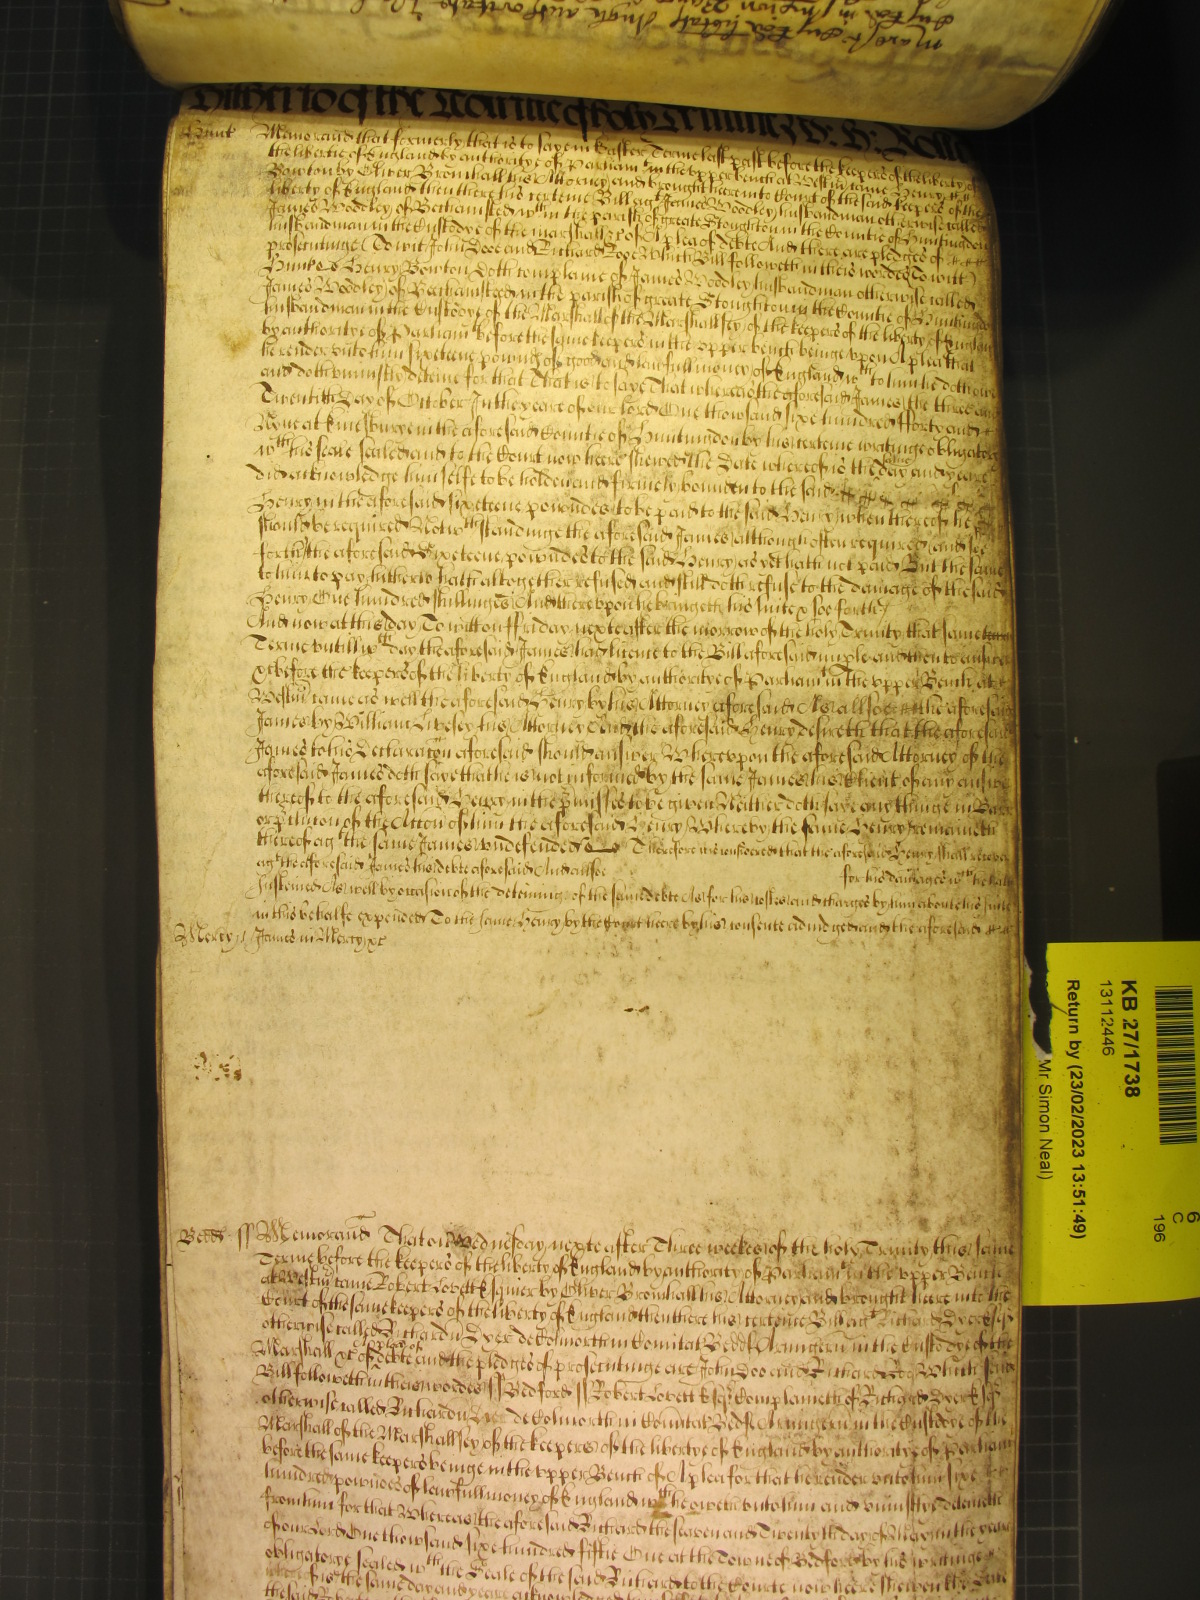 Hitherto of the Terme of holy Trinity
Hunt Memorand that formerly that is to saye in Easter Terme last past before the keepers of the liberty of
the libertie of England by authoritye of Parliamt in the upper bench at Westmr came Henry
Bowton by Oliver Bromhall his Attorney and brought here into the Court of the said keepers of the
liberty of England then there his certeine Bill agt James Woodley husbandman otherwise called
James Woodley of Berhamsted wthin the parish of greate Stoughton in the Countie of Huntingdon
husbandman in the Custodye of the marshall &c of A plea of debte And there are pledges of
prosecutinge (To witt John Doe and Richard Roe Which Bill followeth in theis wordes To witt)
Hunt ss Henry Bowton doth complaine of James Woodley husbandman otherwise called
James Woodley of Berhamsteed in the parish of greate Stoughton in the Countie of Huntingdon
husbandman in the Custodye of the Marshall of the Marshallsey of the keepers of the liberty of England
by authoritye of Parliamt before the same keepers in the upper bench beinge upon A plea that
he render unto him sixeteene pownds of good and lawfull money of England wch to him he doth owe
and doth uniustly deteine for that That is to saye That whereas the aforesaid James the three and
Twentith Day of October In the yeare of our lord One thowsand sixe hundred fforty and
Nyne at in the aforesaid Countie of Huntingdon by his certeine writinge obligatory
wth his seale sealed and to the Court now heere shewed the Date whereof is the same day and yeare
did acknowledge himselfe to be holden and firmely bounden to the said
Henry in the aforesaid sixeteene powndes to be paid to the said Henry when thereof he
should be required Notwthstandinge the aforesaid James although often required and soe
forth the aforesaid Sixeteene powndes to the said Henry as yet hath not paid But the same
to him to pay hitherto hath altogether refused and still doth refuse to the damage of the said
Henry One hundred shillinges And thereupon he bringeth his suite & soe forth
And now at this day To witt on ffriday nexte after the morrow of the holy Trinity that same
Terme untill wch day the aforesaid James had licence to the Bill aforesaid imple and then to answere
&c before the keepers of the liberty of England by authoritye of Parliamt in the upper Bench at
Westmr came as well the aforesaid Henry by his Attorney aforesaid As allsoe the aforesaid
James by William Livesey his Attorney And the aforesaid Henry desireth that the aforesaid
James to his Declaracon aforesaid should answer Whereupon the aforesaid Attorney of the
aforesaid James doth saye that he is not informed by the same James his Client of any answer
thereof to the aforesaid Henry in the premisses to be given Neither doth saye any thinge in Barr
or of the Action of him the aforesaid Henry Whereby the same Henry remaineth
thereof agt the same James undefended Therefore it is considered that the aforesaid Henry shall recover
agt the aforesaid James his debte aforesaid And allsoe for his damages wch he hath
susteined As well by occasion of the deteininge of the same debte As for his costes and charges by him about his suite
in this behalfe expended To the same Henry by the Court heere by his consente adiudged And the aforesaid
Mercy James in Mercy &c
Bedd ss Memorand That on Wednesday nexte after Three weekes of the holy Trinity this same
Terme before the keepers of the liberty of England by authority of Parliamt in the upper Bench
at Westmr came Robert Lovett Esquier by Oliver Bromhall his Attorney and brought heere into the
Court of the same keepers of the liberty of England then there his certeine Bill agt Richard Dyer Esqr
otherwise called Richardu Dyer de Colmorth in Comitat Bedd Armigeru in the Custodye of the
Marshall &c of a plea of debte and the pledges of prosecutinge are John Doo and Richard Roo Which said
Bill followeth in theis wordes ss Bedford ss Robert Lovett Esqr Complaineth of Richard Dyer Esqr
otherwise called Richardu Dyer de Colmorth in Comitat Bedf Armigeru in the Custodye of the
Marshall of the Marshallsey of the keepers of the libertye of England by authoritye of Parliamt
before the same keepers beinge in the upper Bench of A plea for that he render unto him sixe
hundred powndes of lawfull money of England wch he oweth unto him and uniustlye deteineth
from him for that Whereas the aforesaid Richard the seaven and Twentyth day of May in the yeare
of our Lord One thowsand sixe hundred fiftie One at the Towne of Bedford by his writinge
obligatorye sealed wth the Seale of the said Richard to the Courte now heere shewen the Date
whereof is the same day and yeare
KB 27/1738
13112446
Return by (23/02/2023 13:51:49)
Mr Simon Neal)
6
C
196